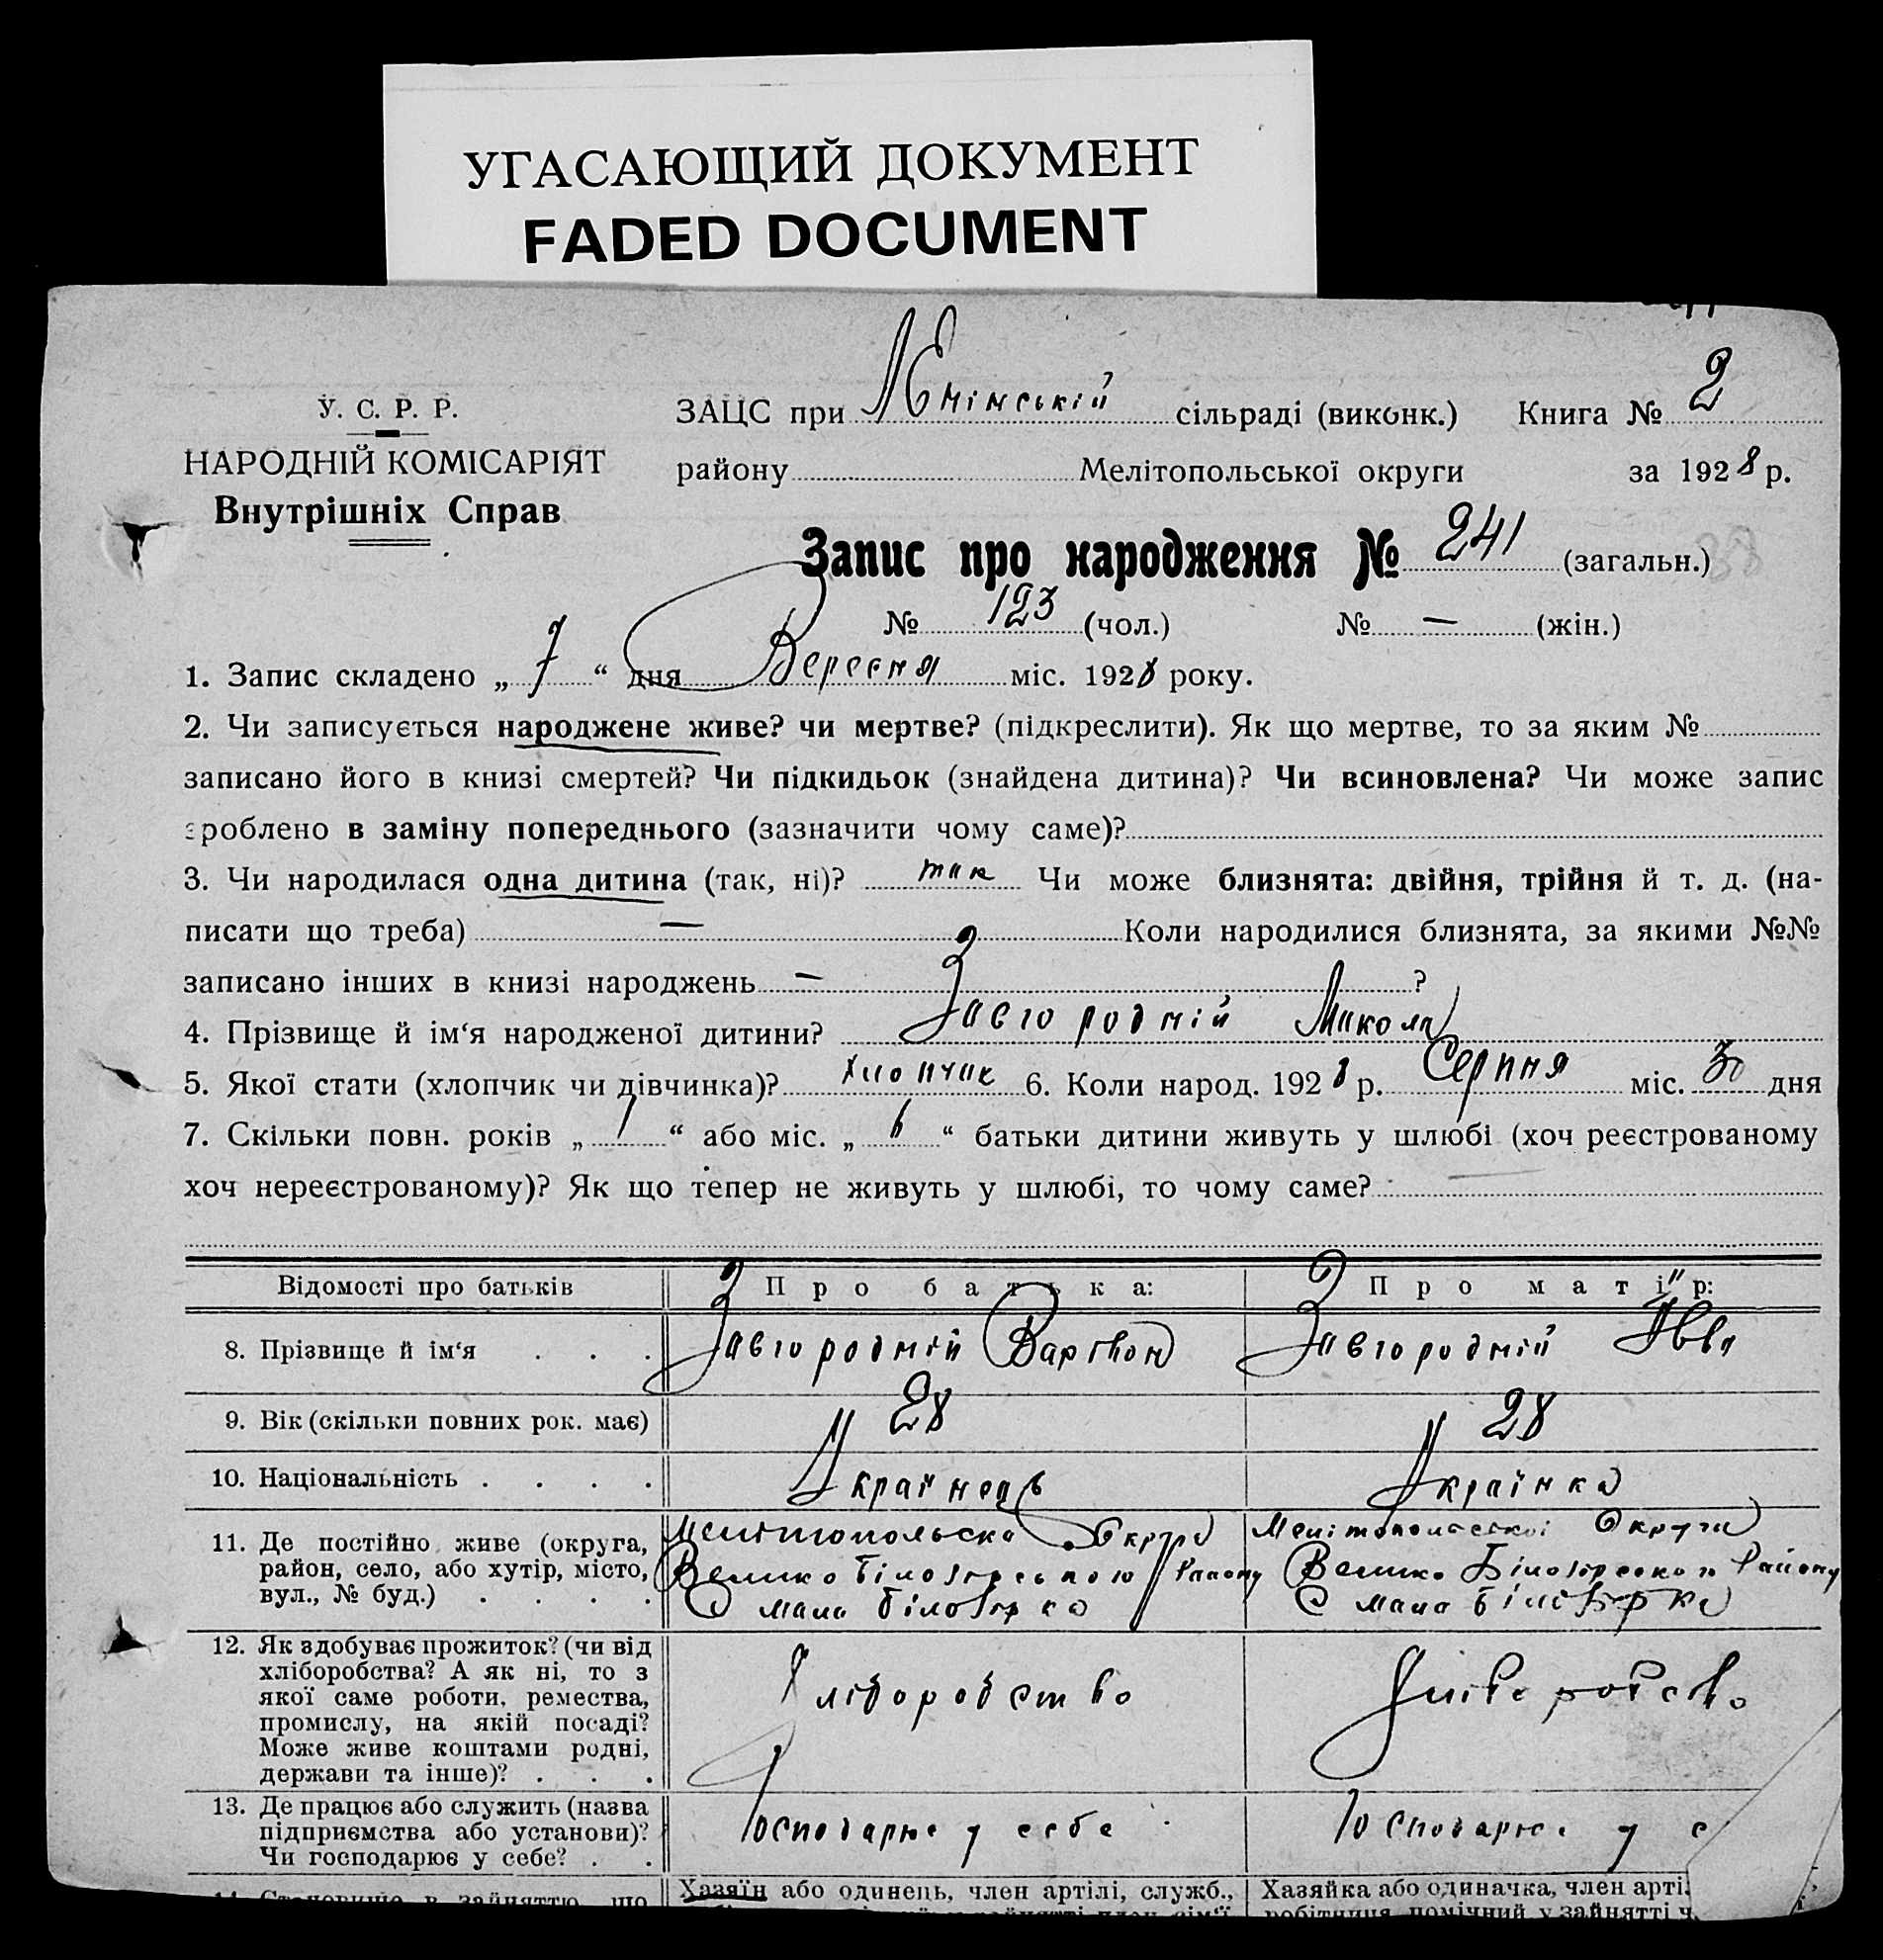 УГАСАЮЩИЙ ДОКУМЕНТ
FADED DOCUMENT
У. С. Р. Р.
НАРОДНІЙ КОМІСАРІЯТ
Внутрішніх Справ
ЗАЦС при Ленінській сільраді (виконк.) Книга № 2
району Мелітопольської округи за 1928 р.
Запис про народження № 241 (загальн.)
№ 123 (чол.) № — (жін.)
1. Запис складено „ 7 “ дня Вересня міс. 1928 року.
2. Чи записується народжене живе? чи мертве? (підкреслити). Як що мертве, то за яким №
записано його в книзі смертей? Чи підкидьок (знайдена дитина)? Чи всиновлена? Чи може запис
зроблено в заміну попереднього (зазначити чому саме)?
3. Чи народилася одна дитина (так, ні)? так Чи може близнята: двійня, трійня й т. д. (на-
писати що треба) — Коли народилися близнята, за якими №№
записано інших в книзі народжень — ?
4. Прізвище й ім‘я народженої дитини? Завгородній Микола
5. Якої стати (хлопчик чи дівчинка)? хлопчик 6. Коли народ. 1928 р. Серпня міс. 30 дня
7. Скільки повн. років „ 1 “ або міс. „ 6 “ батьки дитини живуть у шлюбі (хоч реєстрованому
хоч нереєстрованому)? Як що тепер не живуть у шлюбі, то чому саме? —
Відомості про батьків Про батька: Про матір:
8. Прізвище й ім‘я . . . Завгородній Варівон Завгородній
9. Вік (скільки повних рок. має) 28 28
10. Національність . . . . Українець Українка
11. Де постійно живе (округа, Мелітопольска Округа Мелітопольської Округи
район, село, або хутір, місто, Велико Білозірського Району Велико Білозірського Району
вул., № буд.) . . . . С Мала Білозірка С Мала Білозірка
12. Як здобуває прожиток? (чи від
хліборобства? А як ні, то з
якої саме роботи, ремества, Хліборобство Хліборобство
промислу, на якій посаді?
Може живе коштами родні,
держави та інше)? . . .
13. Де працює або служить (назва
підприємства або установи)? Господарює у себе Господарює у с
Чи господарює у себе? . .
14. Становище в зайняттю, що Хазяїн або одинець, член артілі, служб., Хазяйка або одиначка, член арті
робітниця, помічний у зайнятті ч.